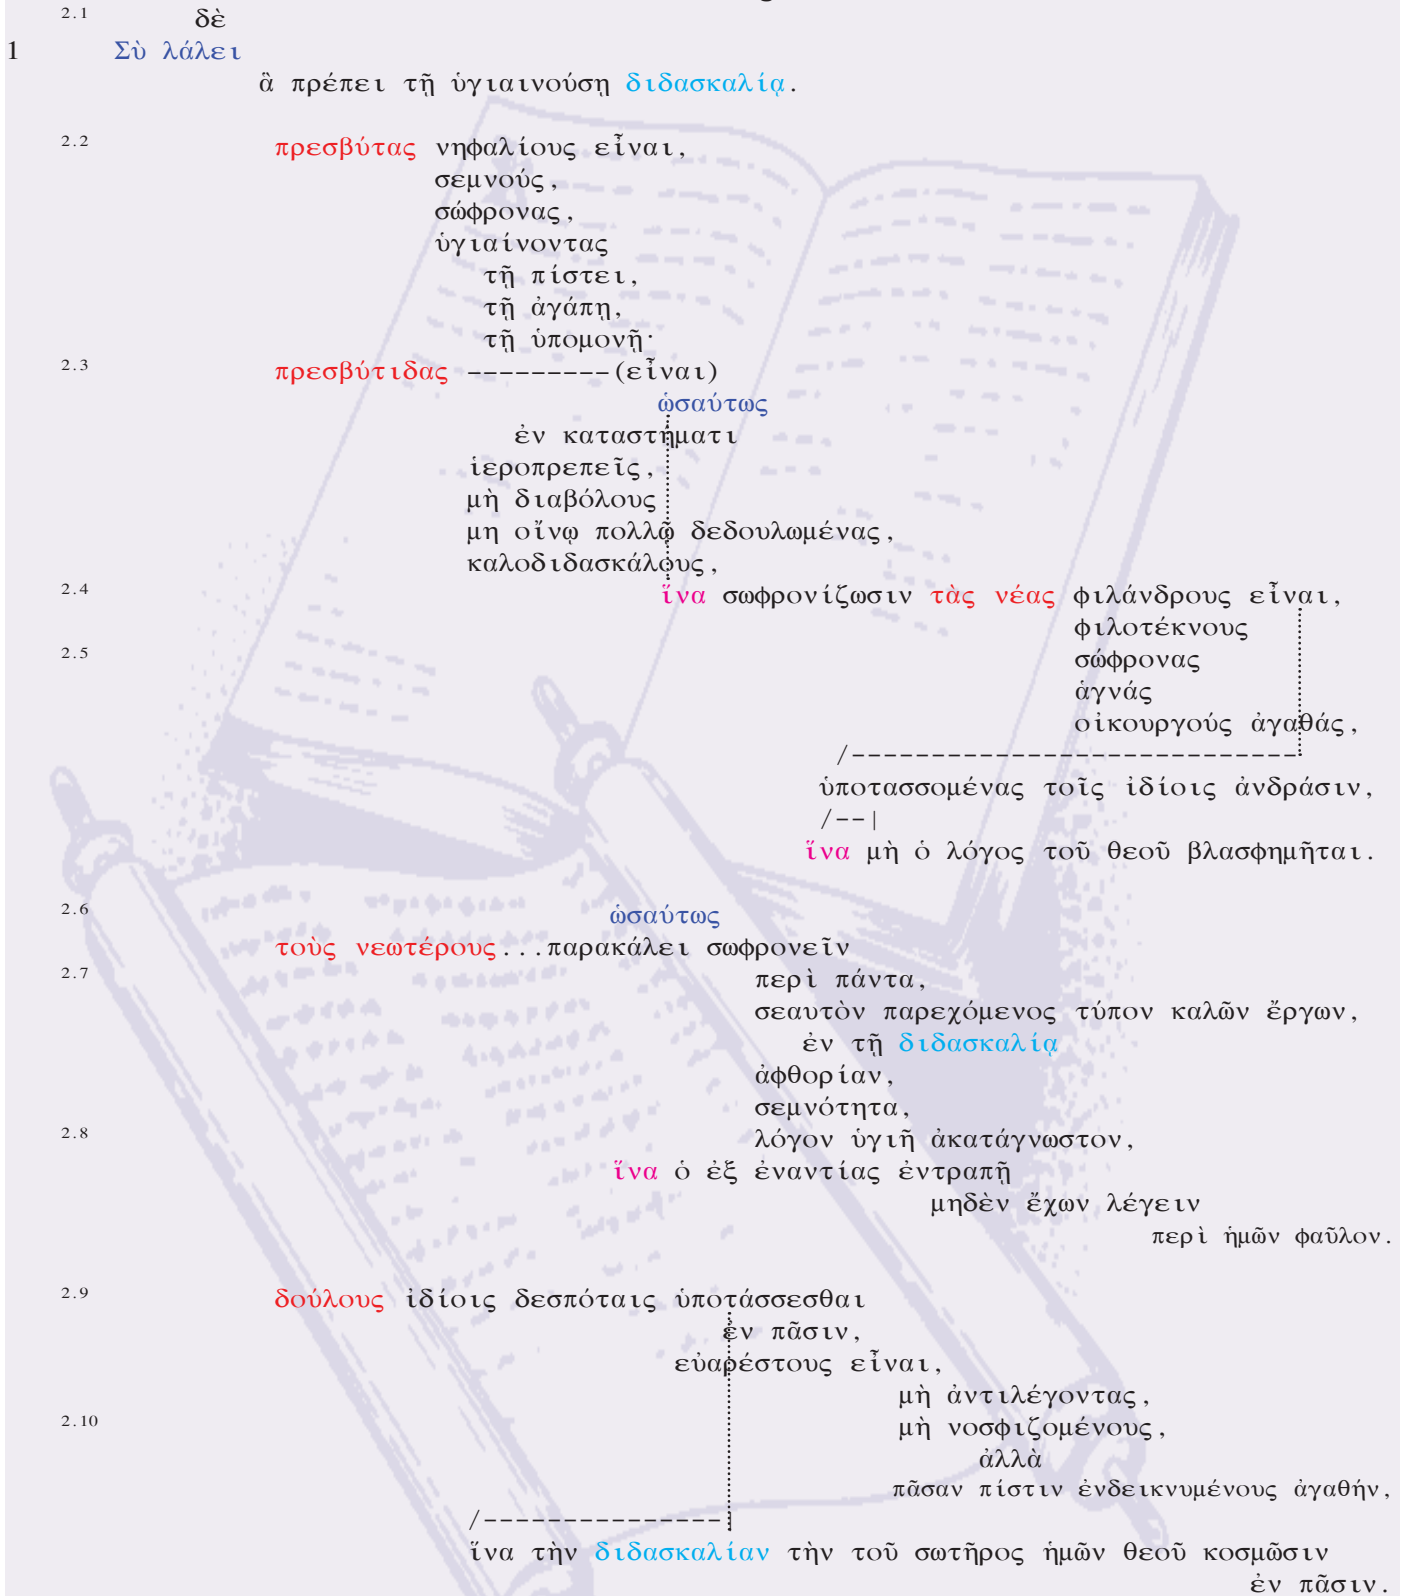 2.1 δὲ
1 Σὺ λάλει
ἃ πρέπει τῇ ὑγιαινούσῃ διδασκαλίᾳ.
2.2 πρεσβύτας νηφαλίους εἶναι,
σεμνούς,
σώφρονας,
ὑγιαίνοντας
τῇ πίστει,
τῇ ἀγάπῃ,
τῇ ὑπομονῇ·
2.3 πρεσβύτιδας ---------(εἶναι)
ὡσαύτως
ἐν καταστήματι
ἱεροπρεπεῖς,
μὴ διαβόλους
μη οἴνῳ πολλῷ δεδουλωμένας,
καλοδιδασκάλους,
2.4 ἵνα σωφρονίζωσιν τὰς νέας φιλάνδρους εἶναι,
φιλοτέκνους
2.5 σώφρονας
ἁγνάς
οἰκουργούς ἀγαθάς,
/----------------------------
ὑποτασσομένας τοῖς ἰδίοις ἀνδράσιν,
/--|
ἵνα μὴ ὁ λόγος τοῦ θεοῦ βλασφημῆται.
2.6 ὡσαύτως
τοὺς νεωτέρους...παρακάλει σωφρονεῖν
2.7 περὶ πάντα,
σεαυτὸν παρεχόμενος τύπον καλῶν ἔργων,
ἐν τῇ διδασκαλίᾳ
ἀφθορίαν,
σεμνότητα,
2.8 λόγον ὑγιῆ ἀκατάγνωστον,
ἵνα ὁ ἐξ ἐναντίας ἐντραπῇ
μηδὲν ἔχων λέγειν
περὶ ἡμῶν φαῦλον.
2.9 δούλους ἰδίοις δεσπόταις ὑποτάσσεσθαι
ἐν πᾶσιν,
εὐαρέστους εἶναι,
μὴ ἀντιλέγοντας,
2.10 μὴ νοσφιζομένους,
ἀλλὰ
πᾶσαν πίστιν ἐνδεικνυμένους ἀγαθήν,
/---------------|
ἵνα τὴν διδασκαλίαν τὴν τοῦ σωτῆρος ἡμῶν θεοῦ κοσμῶσιν
ἐν πᾶσιν.